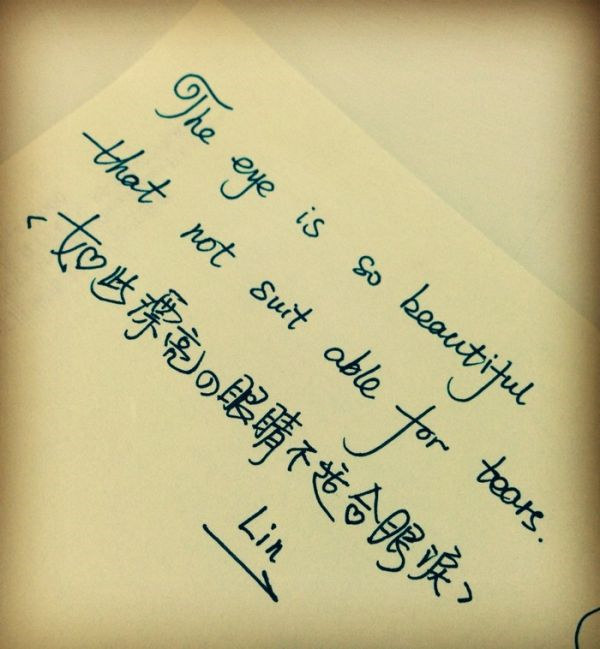 The eye is so beautiful
that not suit able for tears.
「如此漂亮の眼睛不适合眼淚」
Lin